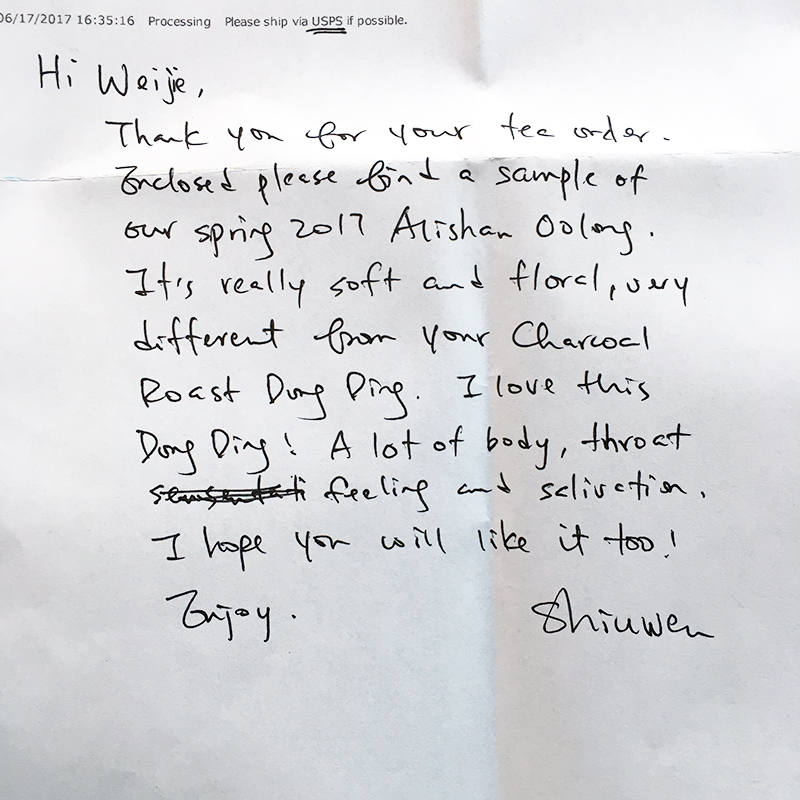 06/17/2017 16:35:16 Processing Please ship via USPS if possible.
Hi Weijie,
Thank you for your tea order.
Enclosed please find a sample of
our spring 2017 Alishan Oolong.
It's really soft and floral, very
different from your Charcoal
Roast Dong Ding. I love this
Dong Ding! A lot of body, throat
feeling and salivation.
I hope you will like it too!
Enjoy. Shiuwen